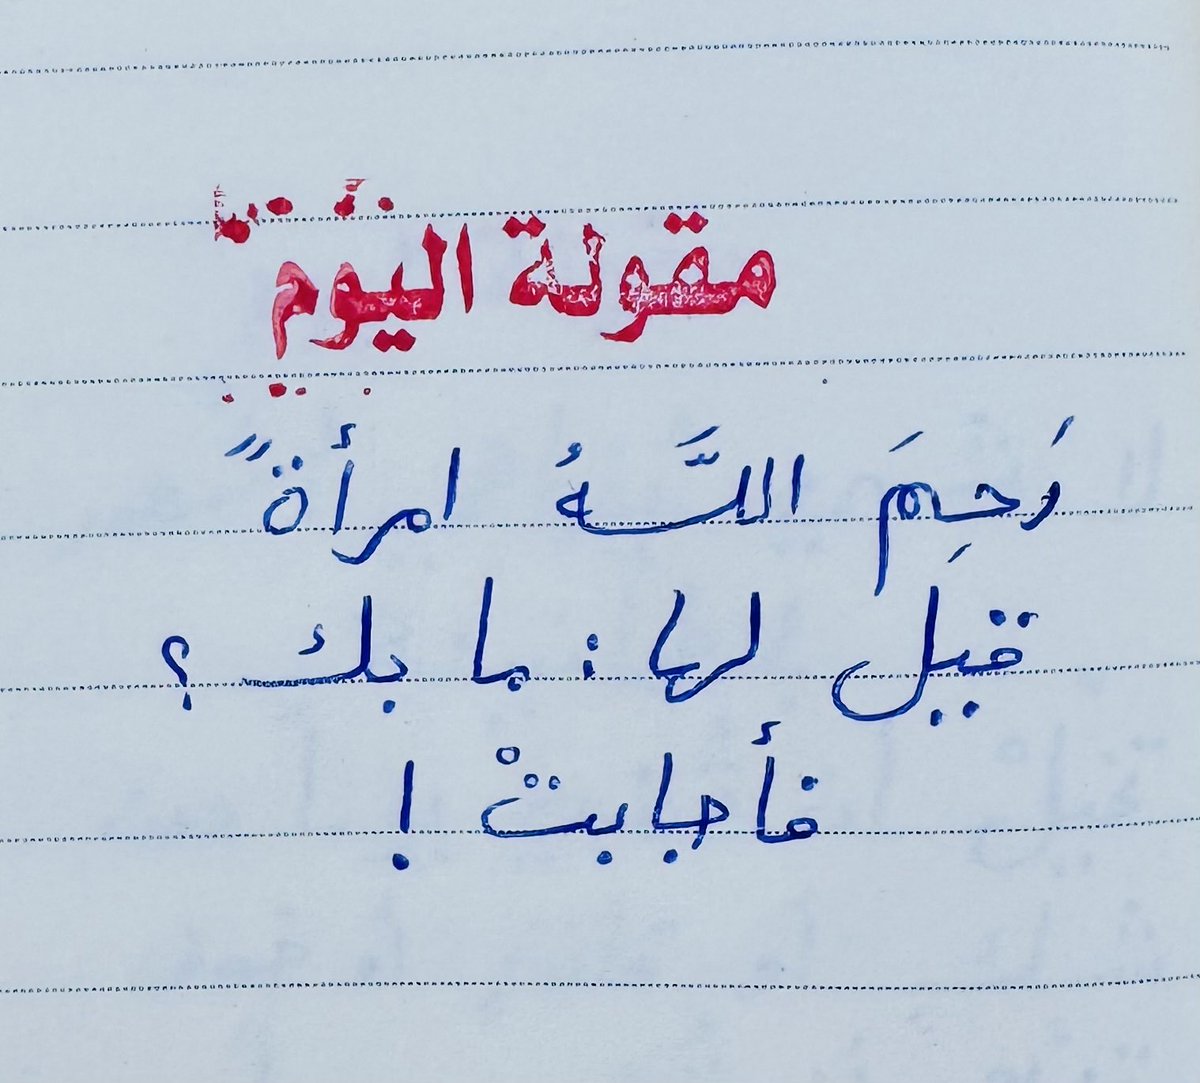 مقولة اليوم
رَحِمَ اللَّهُ امرأةً
قيل لها : ما بك ؟
فأجابتْ !